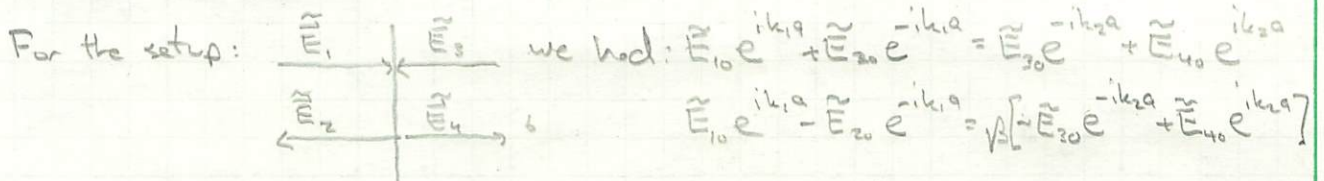 For the setup: Ẽ₁ Ẽ₃ we had: Ẽ₁₀e^{ik₁a} + Ẽ₂₀e^{-ik₁a} = Ẽ₃₀e^{-ik₂a} + Ẽ₄₀e^{ik₂a}
Ẽ₂ Ẽ₄ Ẽ₁₀e^{ik₁a} - Ẽ₂₀e^{-ik₁a} = β[-Ẽ₃₀e^{-ik₂a} + Ẽ₄₀e^{ik₂a}]